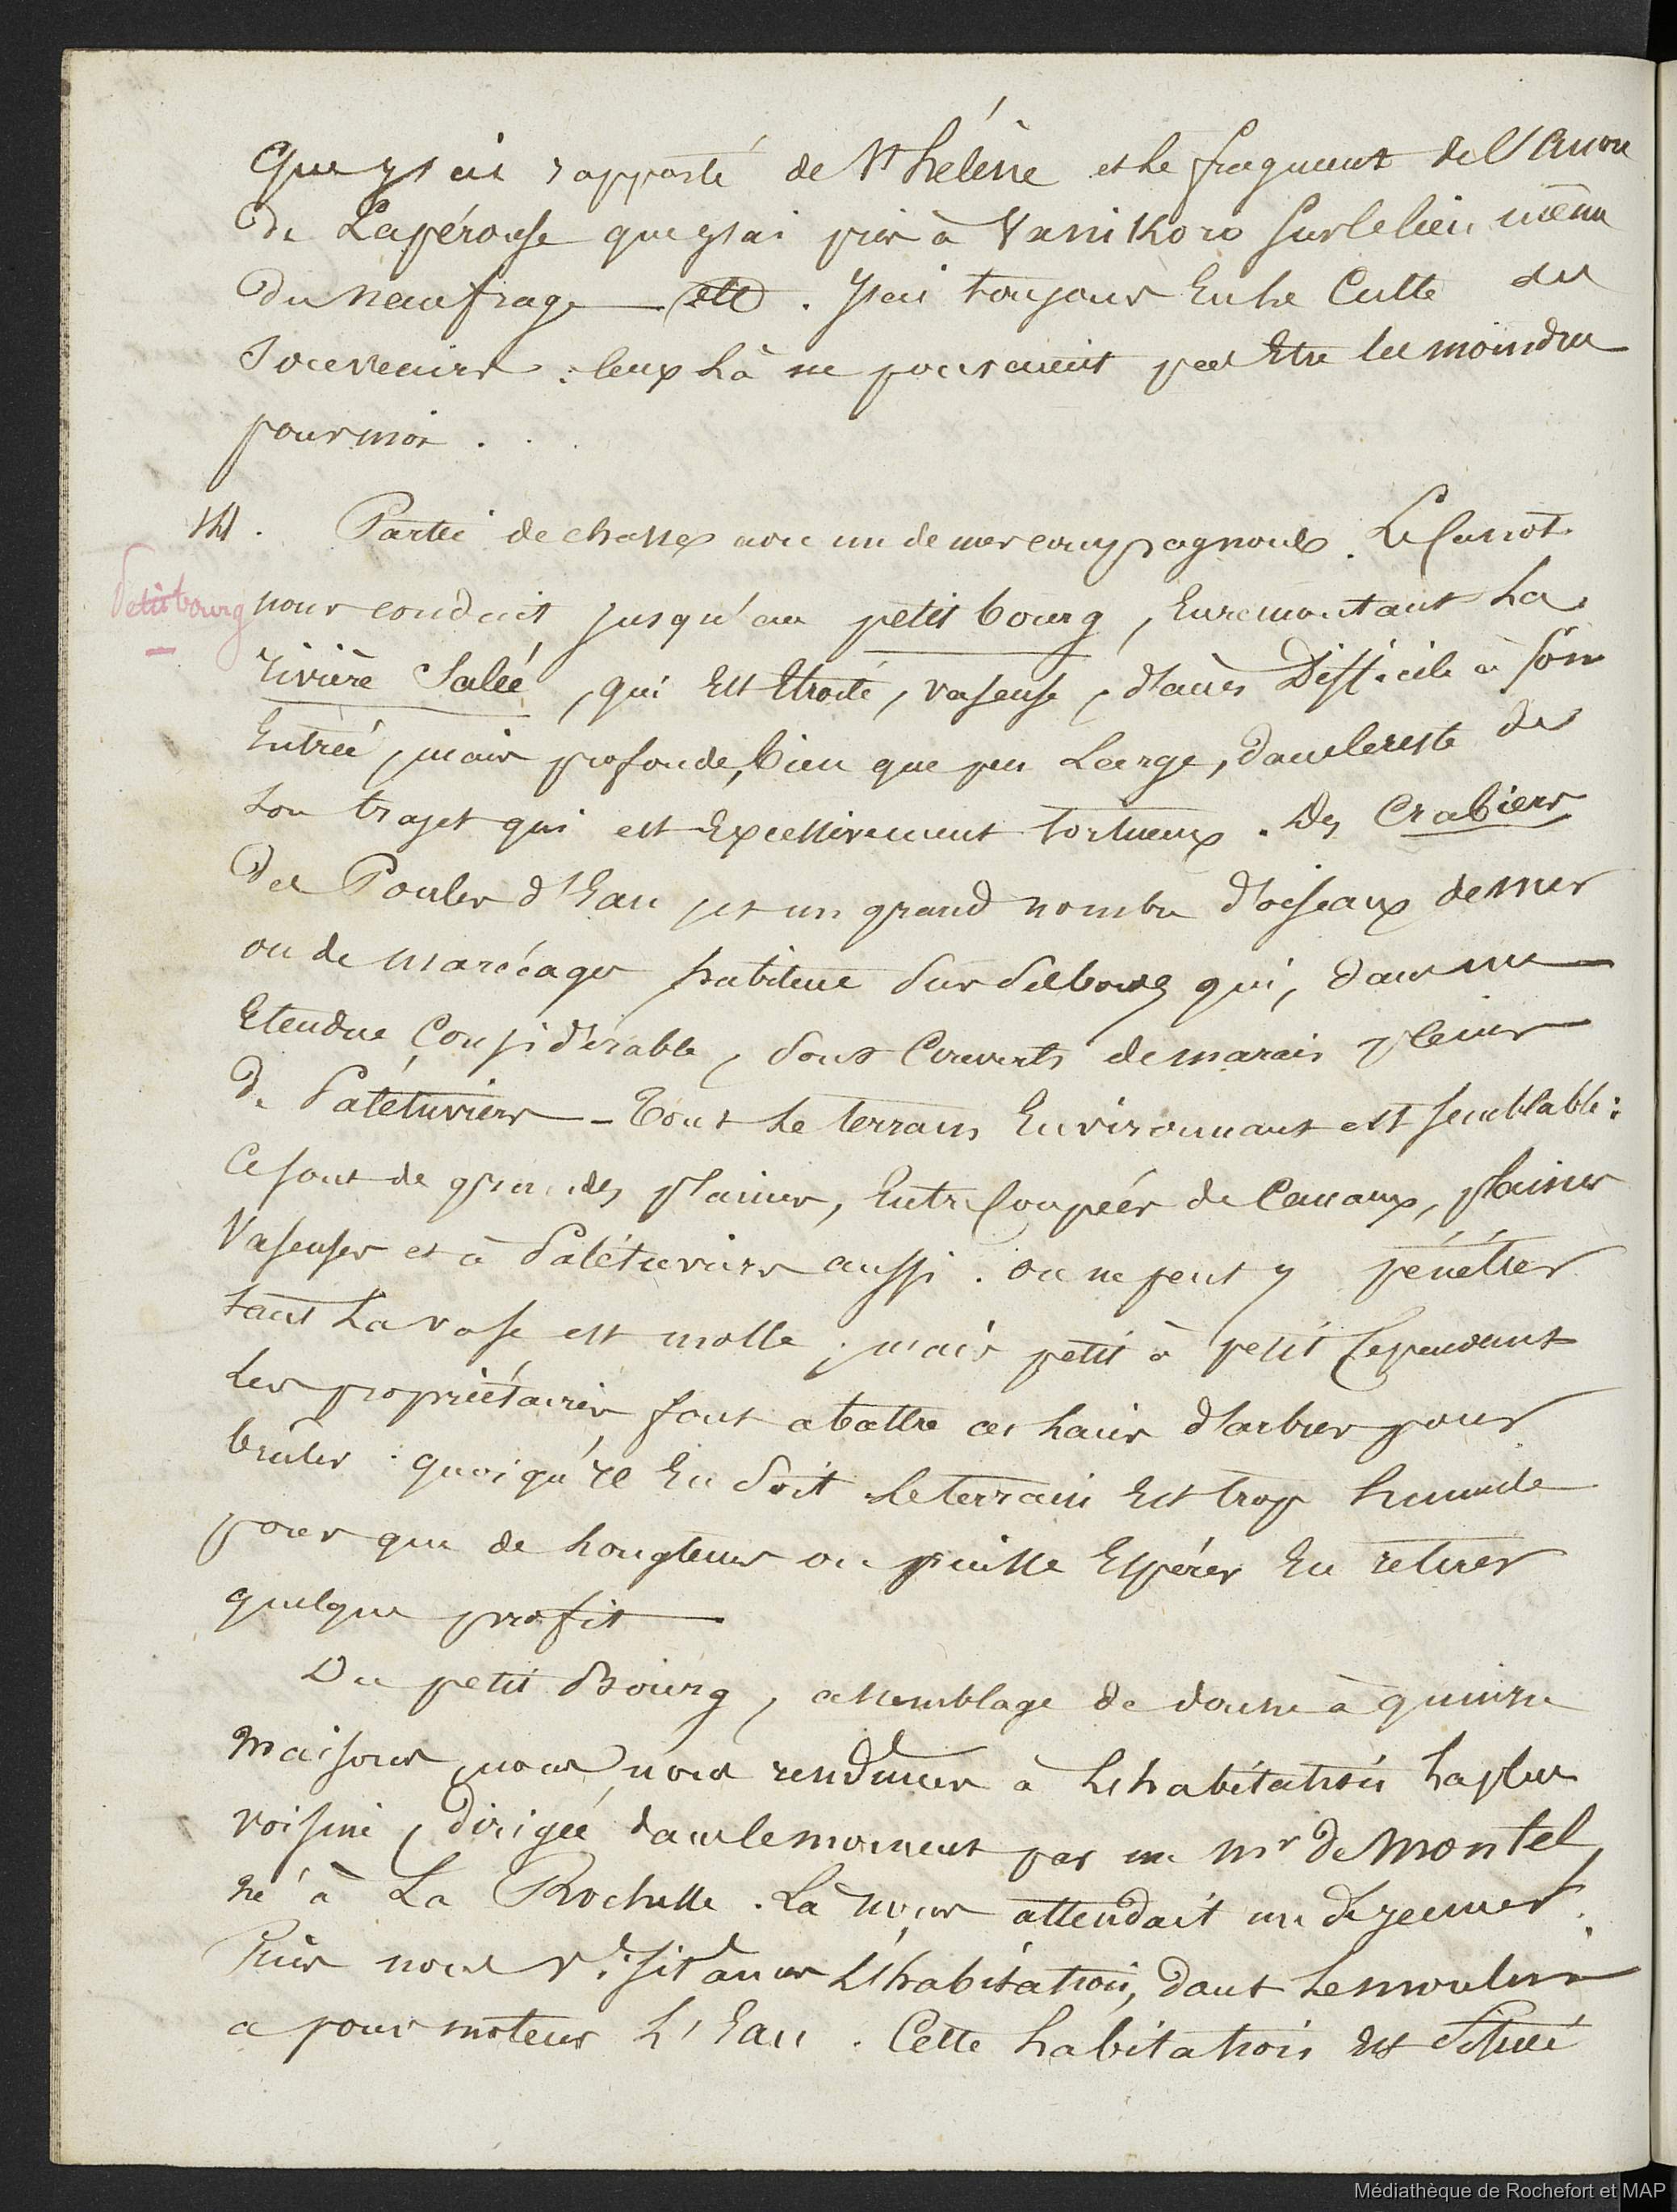 que j'ai rapporté de Ste hélène et le fragment de l'Ancre
De Lapérouse que j'ai pris à Vanikoro sur le lieu même
Du naufrage — etc. J'ai toujours Eu le Culte des
Souvenirs : Ceux là ne pouvaient pas Etre les moindres
pour moi . . .
14. Partie de chasse avec un de mes compagnons. Le Canot
Petit bourg
nous conduit jusqu'au petit bourg, En remontant la
rivière Salée, qui Est Etroite, vaseuse, d'accès Difficile à son
Entrée, mais profonde, bien que peu Large, dans le reste de
son trajet qui est Excessivement tortueux. Des Crabiers
Des Poules d'Eau et un grand nombre d'oiseaux de mer
ou de marécages habitent Sur Ses bords qui, dans une
Etendue Considérable, Sont Couverts de marais pleins
De Palétuviers — Tout le terrain Environnant est semblable :
Ce sont de grandes plaines, Entre Coupées de Canaux, plaines
Vaseuses et à Palétuviers aussi. on ne peut y pénétrer
tant La vase est molle ; mais petit à petit Cependant
les propriétaires font abattre ces haies d'arbres pour
brûler : quoiqu'il En Soit le terrain Est trop humide
pour que de longtems on puisse Espérer En retirer
quelque profit —
Du petit Bourg, assemblage de douze à quinze
maisons, nous nous rendîmes à L'habitation la plus
voisine, Dirigée dans le moment par un Mr De Montel,
né à La Rochelle. Là nous attendait un déjeuner.
Puis nous visitâmes L'habitation, dont le moulin
a pour moteur L'Eau. Cette habitation est Située
Médiathèque de Rochefort et MAP